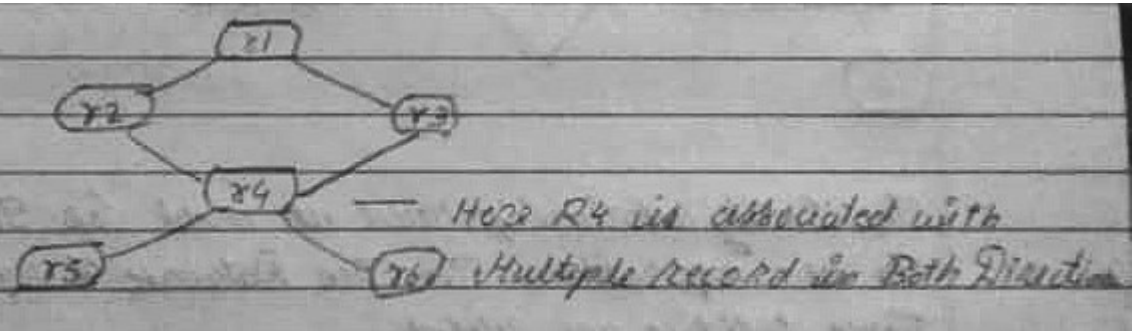 r1
r2 r3
r4
— Here R4 is associated with
r5 r6 Multiple record in Both Direction